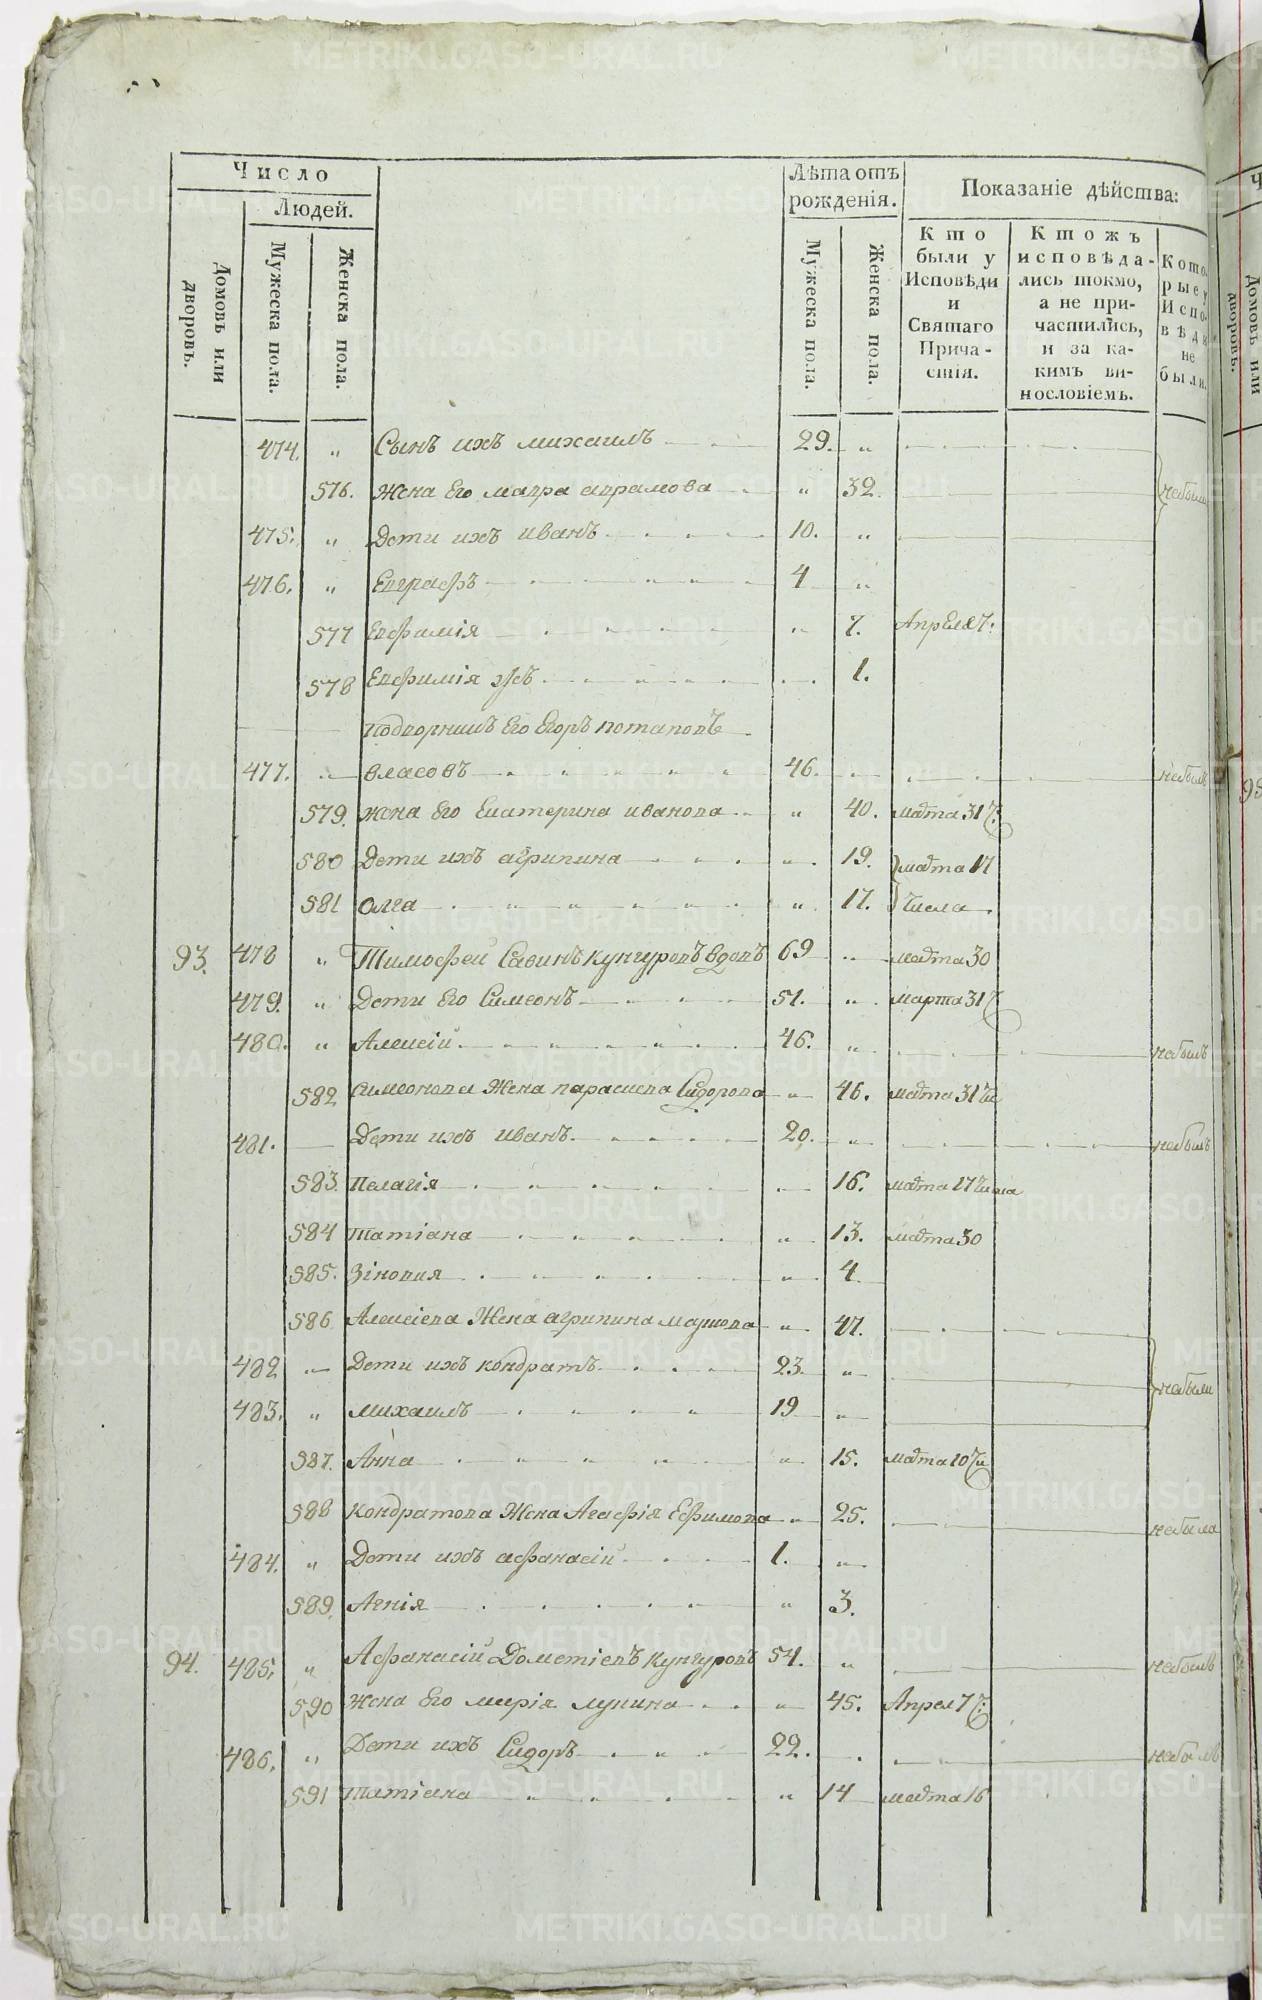 Число
Людей.
Домовъ или дворовъ.
Мужеска пола.
Женска пола.
Лѣта отъ рожденія.
Мужеска пола.
Женска пола.
Показаніе дѣйства:
Кто были у Исповѣди и Святаго Прича-стія.
Ктожъ исповѣда-лись токмо, а не при-частились, и за ка-кимъ ви-нословіемъ.
Кото-рые у Испо-вѣди не были.
474. „ Сынъ ихъ михаилъ 29. „
576. Жена Его мавра аврамова „ 32. небыли
475. „ Дети ихъ иванъ 10. „
476. „ Евграфъ 4 „
577 Евфимія „ 7. Апреля 7:
578 Евфимія жъ 1.
подворникъ Его Егоръ потаповъ
477. власовъ 46. небылъ
579. жена Его Екатерина иванова „ 40. марта 31 ч.
580 Дети ихъ агрипина „ 19. марта 17
581 Олга „ 17. числа
93. 478 „ Тимофей Савинъ кунгуровъ вдовъ 69 „ марта 30
479. „ Дети Его Симеонъ 51. „ марта 31 ч
480. „ Алексій 46. „ небылъ
582 Симеонова Жена параскева Сидорова „ 46. марта 31 чи
481. Дети ихъ иванъ 20. „ небылъ
583. Пелагія 16. марта 17 числа
584 Татіана „ 13. марта 30
585. Зіновия „ 4
586 Алексіева Жена агрипина маркова „ 47.
482 „ Дети ихъ кондратъ 23. „ небыли
483. „ михаилъ 19 „
587. Анна „ 15. марта 10 чи
588 кондратова Жена Агафія Ефимова „ 25. небыла
484. „ Дети ихъ афанасій 1. „
589 Агнія „ 3.
94. 485. „ Афанасій Дометіевъ кунгуровъ 54. „ небылъ
590 Жена Его марія лукина „ 45. Апрел 7 ч.
486. „ Дети ихъ Сидоръ 22. небылъ
591 Татіана „ 14 марта 16
Домовъ или дворовъ.
METRIKI.GASO-URAL.RU